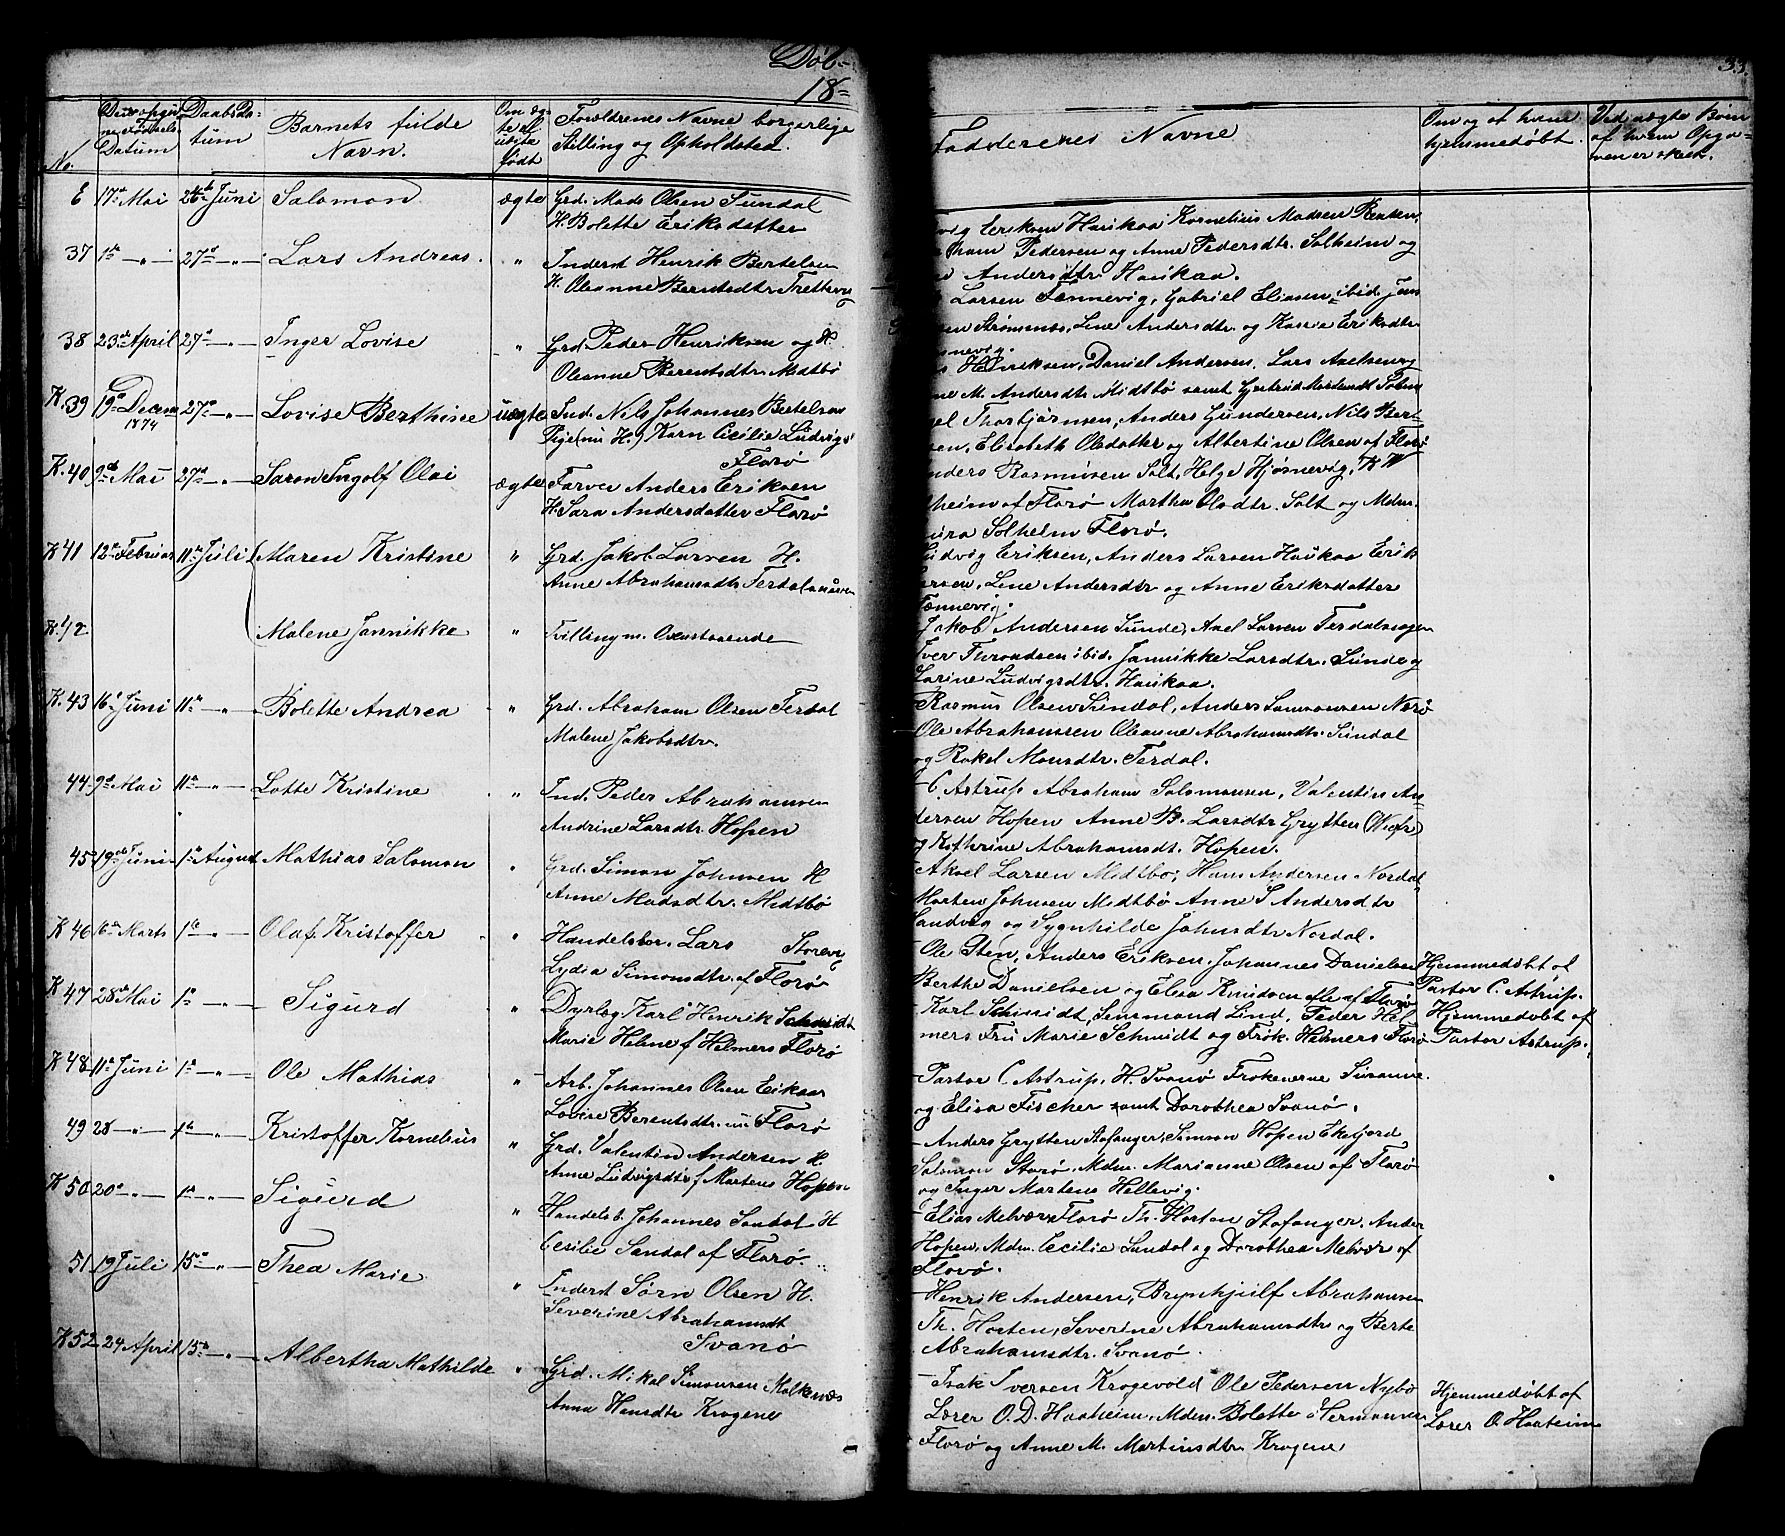 Döb-
18-
33.
No.
Datum
Daabsda-
tum
Barnets fulde
Navn.
Om æg-
te el.
født
Forældrenes Navne borgerlige
Stilling og Opholdsted.
Faddernes Navne
Om og af hvem
hjemmedøbt.
Ved uægte Börn
af hvem Opga-
ven er skeet.
17de Mai 26de Juni Salomon ægte Grd. Mads Olsen Sundal
H. Bolette Eriksdatter
37 1ste -"- 27de -"- Lars Andreas. " Inderst Henrik Bertelsen
H. Oleanne Berentsdtr.
38 23de April 27de -"- Inger Lovise " Grd. Peder Henriksen og H.
Oleanne Berentsdtr. Midtbö
K. 39 19de Decem 27de -"- Lovise Berthine uægte Ind. Nils Johannes Bertelsen
1874
Karn Cecilie Ludvigs
Florø
K. 40 9de Mai 27de -"- Saron Ingolf Olai ægte Farver Anders Eriksen
H. Sara Andersdatter Florø
K 41 12te Februar 11te Juli Maren Kristine " Grd. Jakob Larsen H.
Anne Abrahamsdtr.
K. 42 Malene Jannikke " Tvilling m. Ovenstaaende
K. 43 16de Juni 11te -"- Bolette Andrea " Grd. Abraham Olsen Terdal
Malene Jakobsdtr.
44 9de Mai 11te -"- Lotte Kristine " Ind. Peder Abrahamsen
Andrine Larsdtr. Hopen
45 19de Juni 1ste August Mathias Salomon " Grd. Simon Johnsen H
Anne Madsdtr. Midtbö
K 46 16de Marts 1ste -"- Olaf Kristoffer " Handelsbor. Lars
Lydia Simonsdtr. af Florø
K. 47 28de Mai 1ste -"- Sigurd " Dyrlæg Karl Henrik Schmidt
Marie Helene f Helmers Florø
K 48 11te Juni 1ste -"- Ole Mathias " Arb. Johannes Olsen Eikaas
Lovise Berentsdtr. Florø
49 28 -"- 1ste -"- Kristoffer Kornelius " Grd. Valentin Andersen H.
Anne Ludvigsdtr f Martens Hopen
K 50 20de -"- 1ste -"- Sigurd " Handelsb. Johannes Sandal H
Cecilie Sandal af Florø.
51 19 Juli 15de -"- Thea Marie " Inderst Sørn Olsen H.
Severine Abrahamsdt
Svanø
K 52 24 April 15de -"- Albertha Mathilde " Grd. Mikal Simonsen
Anna Hansdtr Krogene
Eriksen Haukaa Kornelius Madsen
Pedersen og Anne Pedersdtr. Solheim og
Andersdtr Haukaa.
Larsen Tønnevig, Gabriel Eliasen ibid. Jens
Strømsnes, Line Andersdtr. og Eriksdtr.
Henriksen, Daniel Andersen, Lars Axelsen og
M. Andersdtr Midtbö samt
Thorbjørnsen, Anders Gundersen, Nils Bert-
sen, Elisabeth Olsdatter og Albertine Olsen af Florø
Rasmusen Solt, Helge Hjøsnevig,
af Florø Martha Olsdtr. Solt og Mdm.
Solheim Florø.
Ludvig Eriksen, Anders Larsen Haukaa Erik
Larsen, Line Andersdtr og Anne Eriksdatter
Tønnevig.
Jakob Andersen Sunde, Axel Larsen
Iver ibid. Jannikke Larsdtr. Sunde og
Larine Ludvigsdtr. Haukaa.
Rasmus Olsen Sundal, Anders Samsonsen
Ole Abrahamsen Oleanne Abrahamsdtr. Sundal
og Rakel Monsdtr. Terdal.
- C. Astrup, Abraham Salomonsen, Valentin An-
dersen Hopen Anne B. Larsdtr Grytten
og Kathrine Abrahamsdt. Hopen.
- Aksel Larsen Midtbö, Hans Andersen Nordal
Morten Johnsen Midtbö Anne S. Andersdtr
Sandvig og Sygnhilde Johnsdtr Nordal.
- Ole Sten, Anders Eriksen, Johannes Danielsen
Berthe Danielsen og Elisa Knudsen alle af Florø
- Karl Schmidt, Sensmand Lind, Peder Hel-
mers Fru Marie Schmidt og Frøk. Helmers Florø
Hjemmedöbt af
Pastor C. Astrup.
Hjemmedöbt af
Pastor Astrup.
- Pastor C. Astrup, H. Svanø Frøkenerne Susanne
og Elisa Fischer samt Dorothea Svanø.
- Anders Grytten Stafanger, Samson Hopen Ekefjord,
Salomon Storø, Mdm. Marianne Olsen af Florø
og Inger Martens Hellevig.
- Elias Melvær Florø Th. Horten Stafanger, Anders
Hopen, Mdm. Cecilie Sandal og Dorothea Melvær af
Florø.
- Henrik Andersen, Brynhjulf Abrahamsen
Th. Horten, Severine Abrahamsdtr og Berte
Abrahamsdtr. Svanø.
- Isak Iversen Krogevold Ole Pedersen Nybø
Lærer O. D. Haaheim, Mdm. Bolette Hermansen
Florø og Anne M. Martinsdtr. Krogene
Hjemmedöbt af
Lærer O. Haaheim